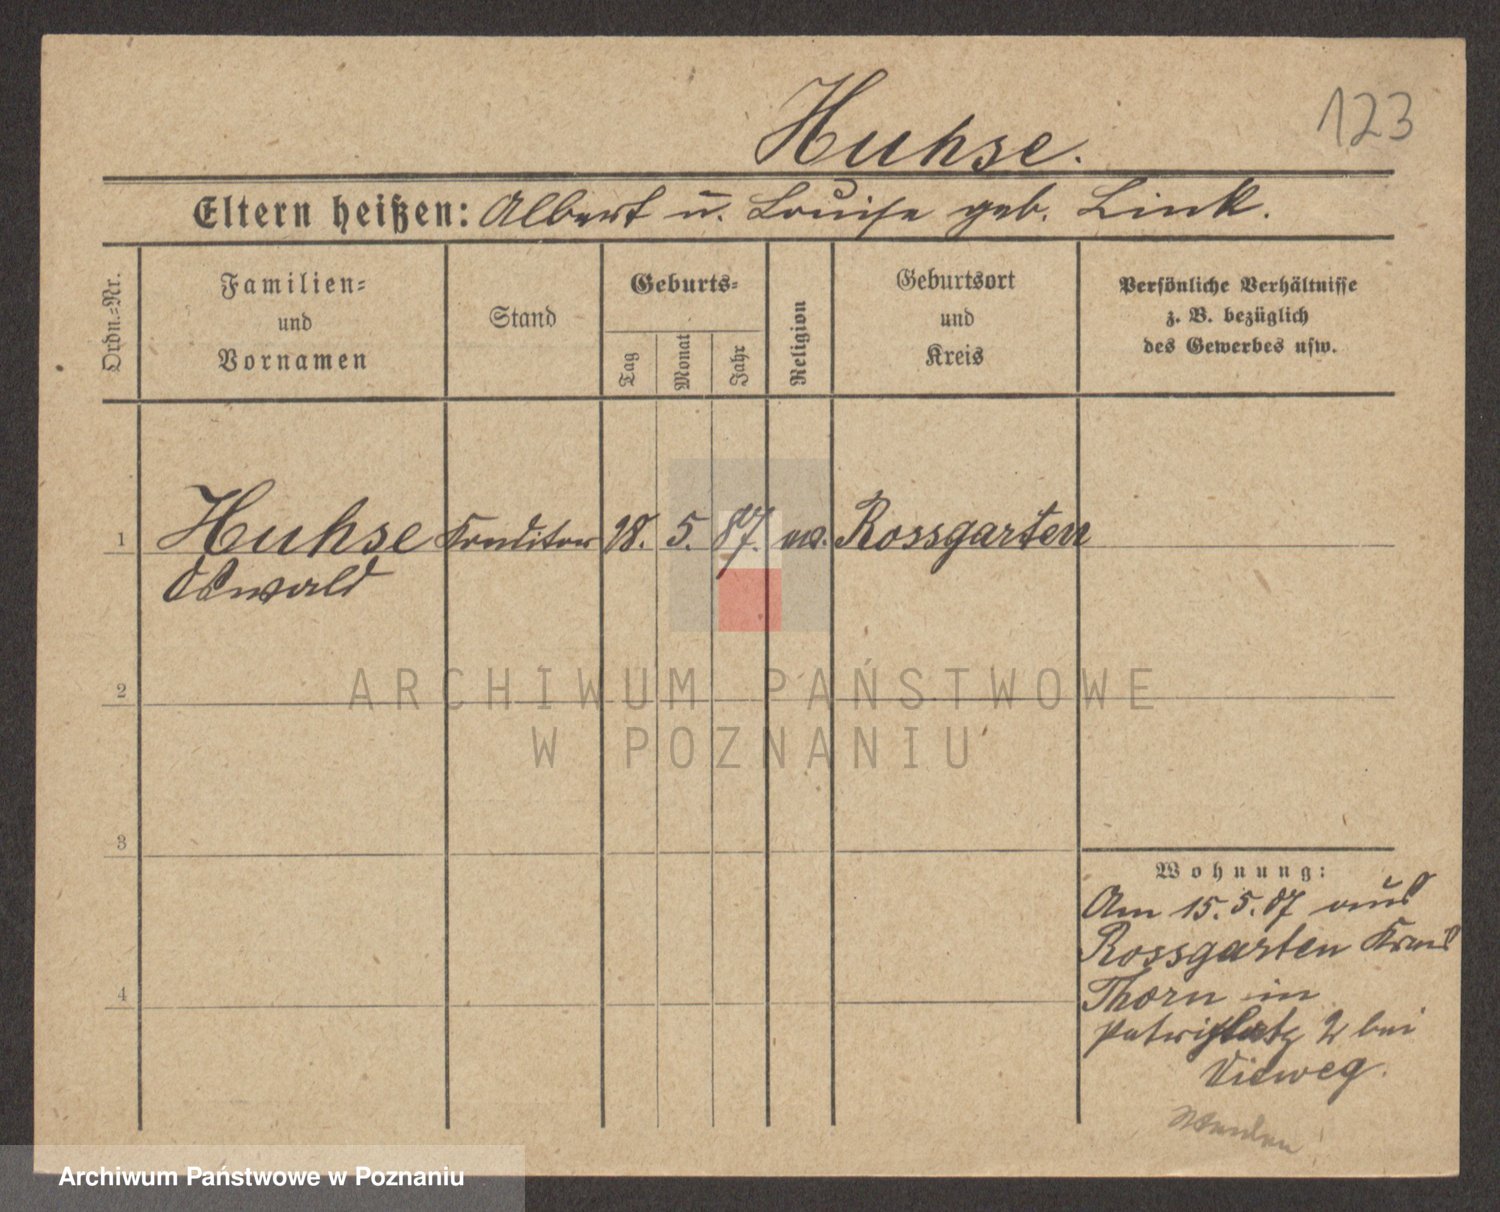 123
Huhse.
Eltern heißen: Albert u. Louise geb. Link.
Ordn.=Nr.
Familien=
und
Vornamen
Stand
Geburts=
Tag
Monat
Jahr
Religion
Geburtsort
und
Kreis
Persönliche Verhältnisse
z. B. bezüglich
des Gewerbes usw.
1 Huhse Konditor 18. 5. 87. ev. Rossgarten
Oswald
2
3
4
Wohnung:
Am 15.5.07 aus
Rossgarten Kreis
Thorn in
Petriplatz 2 bei
Vieweg.
ARCHIWUM PAŃSTWOWE
W POZNANIU
Archiwum Państwowe w Poznaniu